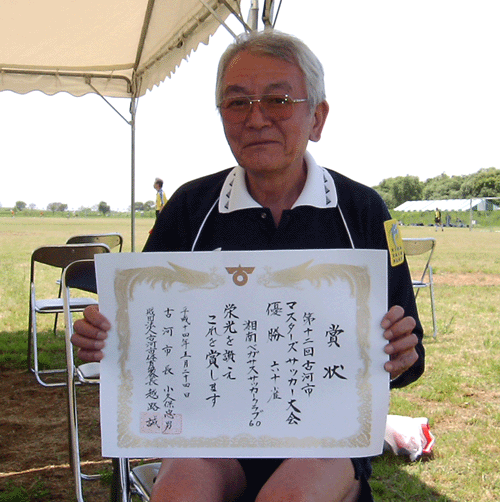 賞状
第十二回古河市
マスターズサッカー大会
優勝 六十雀
湘南ベガサスサッカークラブ60
栄光を讃え
これを賞します
平成十四年五月二十四日
古河市長 小久保忠男